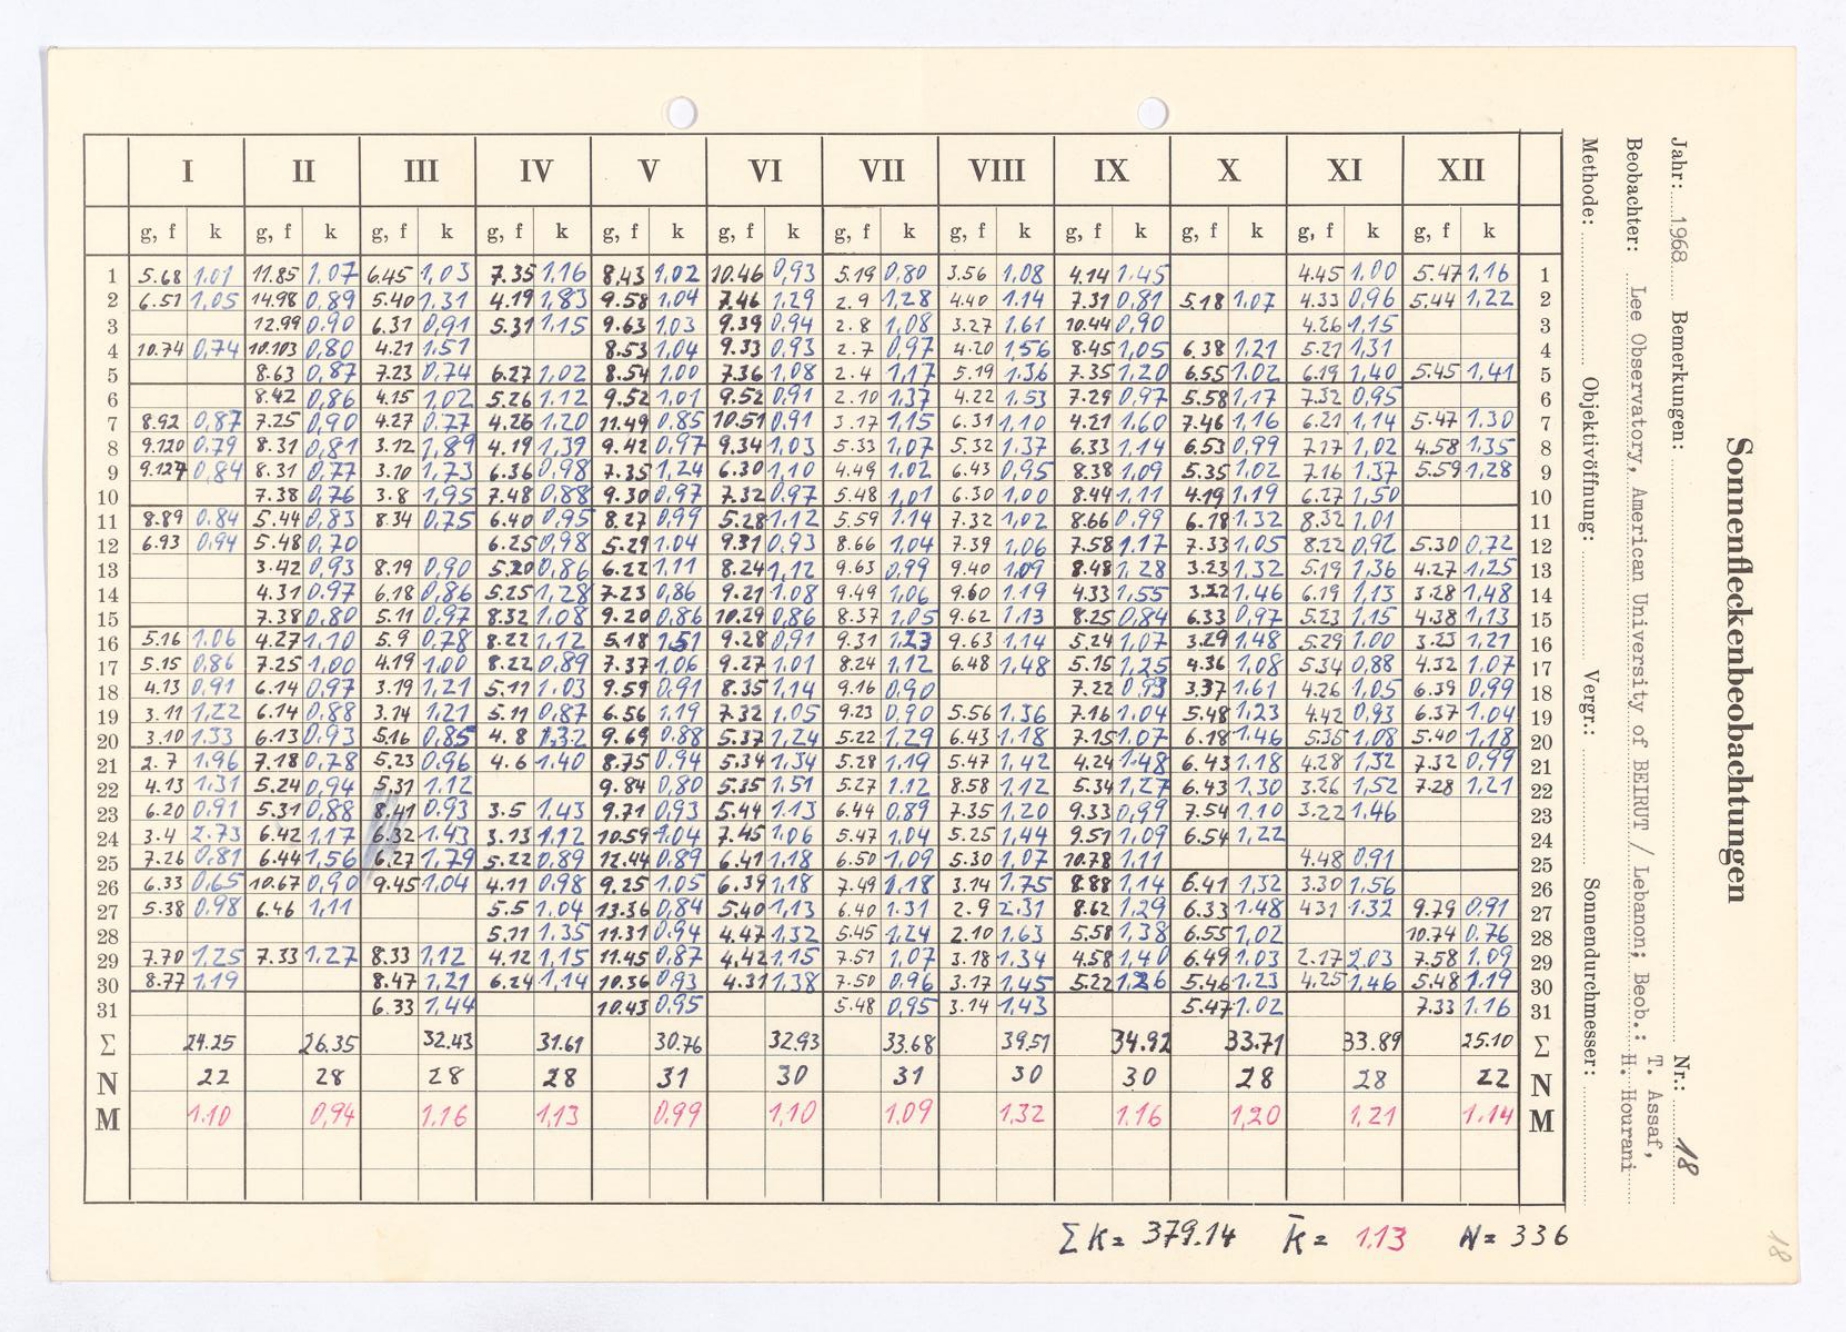 I II III IV V VI VII VIII IX X XI XII
g, f k g, f k g, f k g, f k g, f k g, f k g, f k g, f k g, f k g, f k g, f k g, f k
1 5.68 1.01 11.85 1,07 6.45 1,03 7.35 1.16 8.43 1,02 10.46 0,93 5.19 0,80 3.56 1,08 4.14 1.45 4.45 1.00 5.47 1,16 1
2 6.51 1,05 14.98 0,89 5.40 1.31 4.19 1,83 9.58 1,04 7.46 1,29 2.9 1,28 4.40 1.14 7.31 0,81 5.18 1,07 4.33 0,96 5.44 1,22 2
3 12.99 0,90 6.31 0,91 5.31 1,15 9.63 1,03 9.39 0,94 2.8 1,08 3.27 1.61 10.44 0,90 4.26 1,15 3
4 10.74 0,74 10.103 0,80 4.21 1.51 8.53 1,04 9.33 0,93 2.7 0,97 4.20 1,56 8.45 1,05 6.38 1,21 5.21 1,31 4
5 8.63 0,87 7.23 0,74 6.27 1,02 8.54 1.00 7.36 1,08 2.4 1,17 5.19 1.36 7.35 1,20 6.55 1.02 6.19 1,40 5.45 1,41 5
6 8.42 0,86 4.15 1,02 5.26 1.12 9.52 1,01 9.52 0,91 2.10 1,37 4.22 1.53 7.29 0,97 5.58 1,17 7.32 0,95 6
7 8.92 0,87 7.25 0,90 4.27 0,77 4.26 1,20 11.49 0,85 10.51 0,91 3.17 1,15 6.31 1,10 4.21 1.60 7.46 1,16 6.21 1,14 5.47 1.30 7
8 9.120 0,79 8.31 0,81 3.12 1,89 4.19 1,39 9.42 0,97 9.34 1,03 5.33 1,07 5.32 1.37 6.33 1.14 6.53 0,99 7.17 1,02 4.58 1.35 8
9 9.127 0,84 8.31 0,77 3.10 1,73 6.36 0,98 7.35 1,24 6.30 1,10 4.49 1.02 6.43 0,95 8.38 1,09 5.35 1,02 7.16 1.37 5.59 1,28 9
10 7.38 0,76 3.8 1,95 7.48 0,88 9.30 0,97 7.32 0,97 5.48 1,01 6.30 1,00 8.44 1,11 4.19 1.19 6.27 1,50 10
11 8.89 0.84 5.44 0,83 8.34 0,75 6.40 0,95 8.27 0,99 5.28 1,12 5.59 1.14 7.32 1,02 8.66 0,99 6.18 1.32 8.32 1.01 11
12 6.93 0,94 5.48 0,70 6.25 0,98 5.29 1.04 9.31 0,93 8.66 1,04 7.39 1,06 7.58 1.17 7.33 1,05 8.22 0,92 5.30 0,72 12
13 3.42 0,93 8.19 0,90 5.20 0,86 6.22 1,11 8.24 1,12 9.63 0,99 9.40 1,09 8.48 1,28 3.23 1,32 5.19 1,36 4.27 1,25 13
14 4.31 0,97 6.18 0,86 5.25 1,28 7.23 0,86 9.21 1,08 9.49 1,06 9.60 1.19 4.33 1,55 3.22 1,46 6.19 1,13 3.28 1,48 14
15 7.38 0,80 5.11 0,97 8.32 1.08 9.20 0,86 10.29 0,86 8.37 1,05 9.62 1,13 8.25 0,84 6.33 0,97 5.23 1.15 4.38 1,13 15
16 5.16 1.06 4.27 1,10 5.9 0,78 8.22 1,12 5.18 1.51 9.28 0,91 9.31 1.23 9.63 1,14 5.24 1,07 3.29 1.48 5.29 1.00 3.23 1,21 16
17 5.15 0,86 7.25 1.00 4.19 1,00 8.22 0,89 7.37 1,06 9.27 1,01 8.24 1,12 6.48 1,48 5.15 1,25 4.36 1,08 5.34 0,88 4.32 1.07 17
18 4.13 0,91 6.14 0,97 3.19 1,21 5.11 1.03 9.59 0,91 8.35 1,14 9.16 0,90 7.22 0,93 3.37 1,61 4.26 1,05 6.39 0,99 18
19 3.11 1,22 6.14 0,88 3.14 1,21 5.11 0,87 6.56 1,19 7.32 1.05 9.23 0,90 5.56 1.36 7.16 1.04 5.48 1,23 4.42 0,93 6.37 1.04 19
20 3.10 1.33 6.13 0,93 5.16 0,85 4.8 1,32 9.69 0.88 5.37 1,24 5.22 1,29 6.43 1.18 7.15 1.07 6.18 1.46 5.35 1,08 5.40 1,18 20
21 2.7 1,96 7.18 0,78 5.23 0,96 4.6 1.40 8.75 0,94 5.34 1.34 5.28 1,19 5.47 1,42 4.24 1.48 6.43 1.18 4.28 1,32 7.32 0,99 21
22 4.13 1.31 5.24 0,94 5.31 1.12 9.84 0,80 5.35 1.51 5.27 1,12 8.58 1,12 5.34 1,27 6.43 1,30 3.26 1,52 7.28 1,21 22
23 6.20 0,91 5.31 0,88 8.41 0,93 3.5 1,43 9.71 0,93 5.44 1.13 6.44 0,89 7.35 1,20 9.33 0,99 7.54 1.10 3.22 1.46 23
24 3.4 2.73 6.42 1,17 6.32 1.43 3.13 1,12 10.59 1.04 7.45 1.06 5.47 1,04 5.25 1,44 9.51 1,09 6.54 1,22 24
25 7.26 0,81 6.44 1,56 6.27 1,79 5.22 0,89 12.44 0,89 6.41 1,18 6.50 1,09 5.30 1,07 10.78 1,11 4.48 0,91 25
26 6.33 0,65 10.67 0,90 9.45 1,04 4.11 0,98 9.25 1.05 6.39 1,18 7.49 1.18 3.14 1.75 8.88 1,14 6.41 1,32 3.30 1.56 26
27 5.38 0,98 6.46 1,11 5.5 1.04 13.36 0,84 5.40 1,13 6.40 1.31 2.9 2.31 8.62 1,29 6.33 1.48 4.31 1.32 9.79 0,91 27
28 5.11 1.35 11.31 0.94 4.47 1,32 5.45 1,24 2.10 1.63 5.58 1,38 6.55 1,02 10.74 0.76 28
29 7.70 1.25 7.33 1.27 8.33 1,12 4.12 1,15 11.45 0,87 4.42 1.15 7.51 1,07 3.18 1.34 4.58 1,40 6.49 1.03 2.17 2,03 7.58 1.09 29
30 8.77 1,19 8.47 1,21 6.24 1,14 10.36 0,93 4.31 1,38 7.50 0,96 3.17 1,45 5.22 1,26 5.46 1.23 4.25 1,46 5.48 1.19 30
31 6.33 1,44 10.43 0,95 5.48 0,95 3.14 1,43 5.47 1.02 7.33 1.16 31
Σ 24.25 26.35 32.43 31.61 30.76 32.93 33.68 39.51 34.92 33.71 33.89 25.10 Σ
N 22 28 28 28 31 30 31 30 30 28 28 22 N
M 1.10 0,94 1.16 1,13 0.99 1,10 1.09 1,32 1.16 1,20 1,21 1.14 M
Σ K = 379.14 k̄ = 1.13 N = 336
Sonnenfleckenbeobachtungen
Jahr: 1968 Bemerkungen: Nr.: 18
Beobachter: Lee Observatory, American University of BEIRUT / Lebanon; Beob.: T. Assaf,
H. Hourani
Methode: Objektivöffnung: Vergr.: Sonnendurchmesser:
18